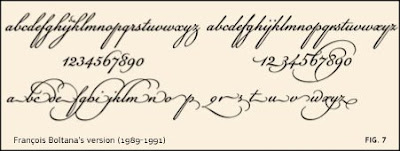 abcdefghijklmnopqrstuvwxyz abcdefghijklmnopqrstuvwxyz
1234567890 1234567890
a bc de fghijklm no p qrst u v wxyz
François Boltana's version (1989-1991) FIG. 7